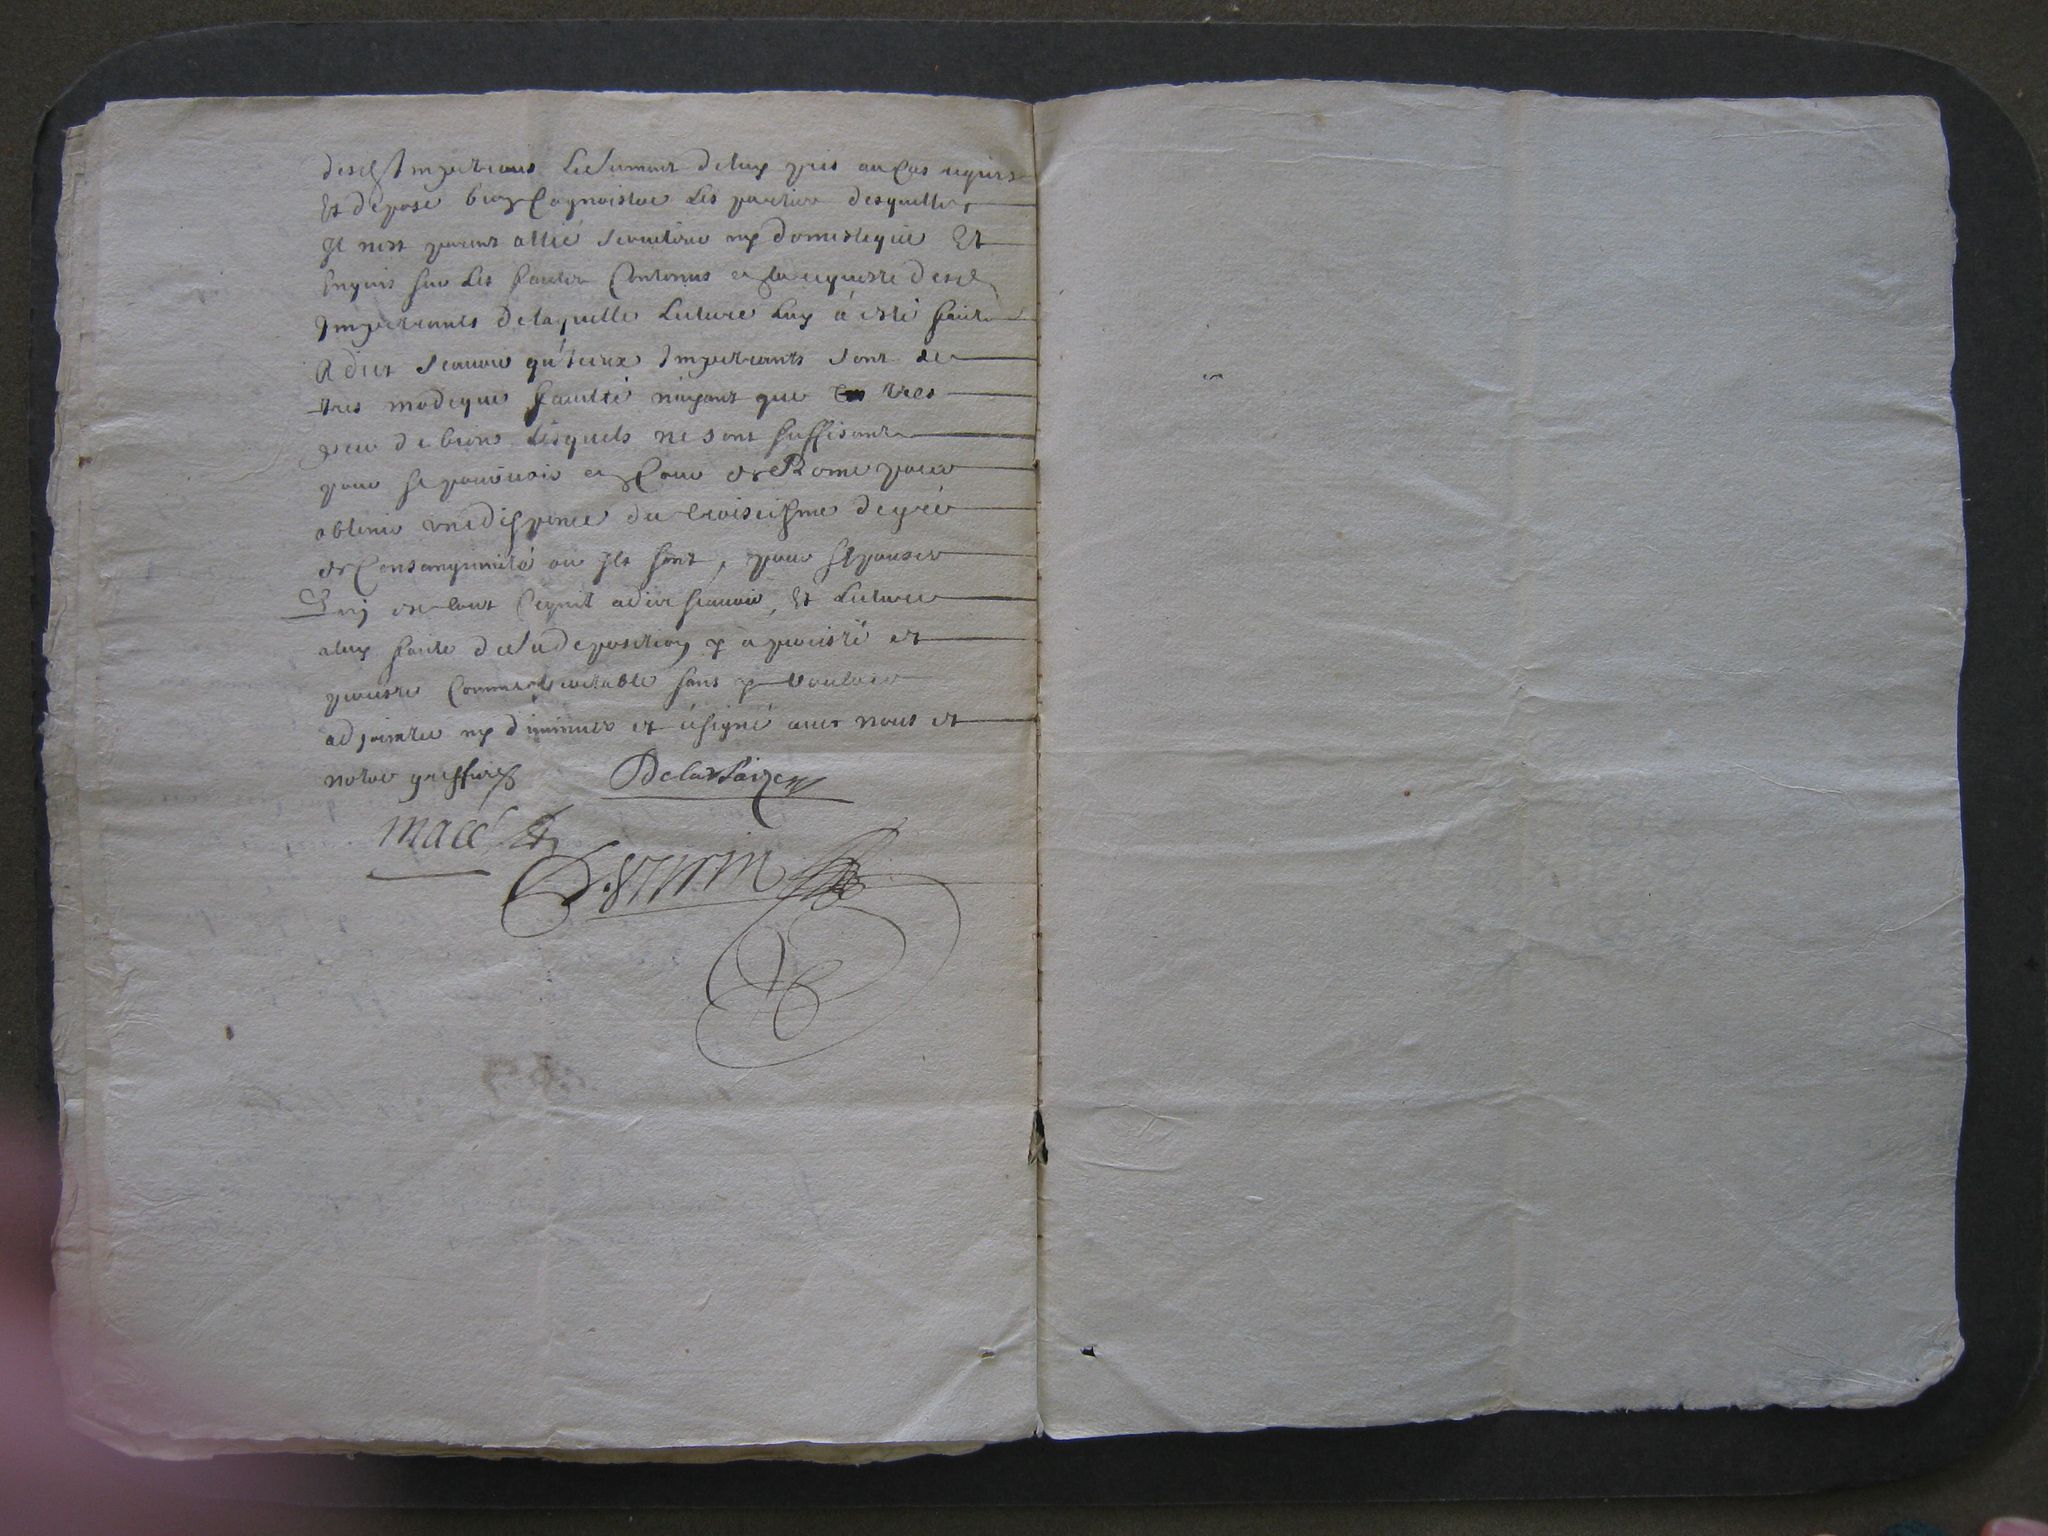 desd Impetrans Le serment de luy pris au cas requis
Et deposé bien Cognoistre Les parties desquelles
Il nest parent allié serviteur ny domestique Et
Enquis sur Les faictz Contenus en la requeste desd
Impetrants de laquelle Lecture Luy a esté faicte
A dict scavoir qu'iceux Impetrants sont de
tres modique faculté n'ayant que tres
peu de biens Lesquels ne sont suffisants
pour se pourvoir en Cour de Rome pour
obtenir une dispence du troisiesme degré
de Consanguinité ou Ils sont, pour s'Epouser
Qui est tout ce qu'il a dit scavoir, Et Lecture
a luy faicte de sa deposition y a persisté et
persiste Comme veritable sans y vouloir
adjouster ny diminuer et a signé avec nous et
notre greffier
Macé